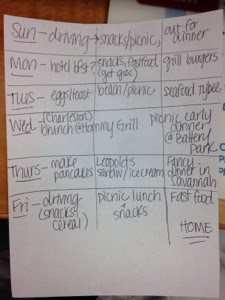 Sun - driving → snacks/picnic, out for
dinner
Mon - hotel bfst? snacks, fastfood grill burgers
(get groc)
Tues - eggs/toast beach/picnic seafood Tybee
Wed - (Charleston) picnic early
brunch @ Hominy Grill dinner
@ Battery
Park
Thurs - make Leopold's Fancy
pancakes sandw/icecream dinner in
Savannah
Fri - driving picnic lunch Fast food
(snacks + snacks
cereal)
HOME